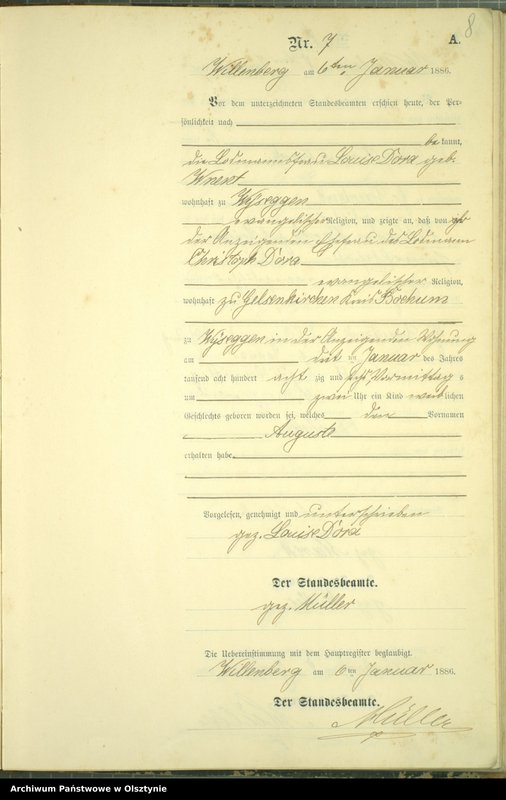 8
Nr. 7
A.
Willenberg am 6ten Januar 1886.
Vor dem unterzeichneten Standesbeamten erschien heute, der Per-
sönlichkeit nach
be kannt,
die Losmannsfrau Louise Dora geb.
wohnhaft zu Wyseggen
evangelischer Religion, und zeigte an, daß von
der Anzeigenden Ehefrau des Losmann
Christoph Dora
evangelischer Religion,
wohnhaft zu Gelsenkirchen Kreis Bochum
zu Wyseggen in der Anzeigenden Wohnung
am ten Januar des Jahres
tausend acht hundert acht zig und sechs Vormittag s
um zwei Uhr ein Kind weib lichen
Geschlechts geboren worden sei, welches den Vornamen
Auguste
erhalten habe.
Vorgelesen, genehmigt und unterschrieben
gez. Louise Dora
Der Standesbeamte.
gez. Müller
Die Uebereinstimmung mit dem Hauptregister beglaubigt.
Willenberg am 6ten Januar 1886.
Der Standesbeamte.
Müller
Archiwum Państwowe w Olsztynie